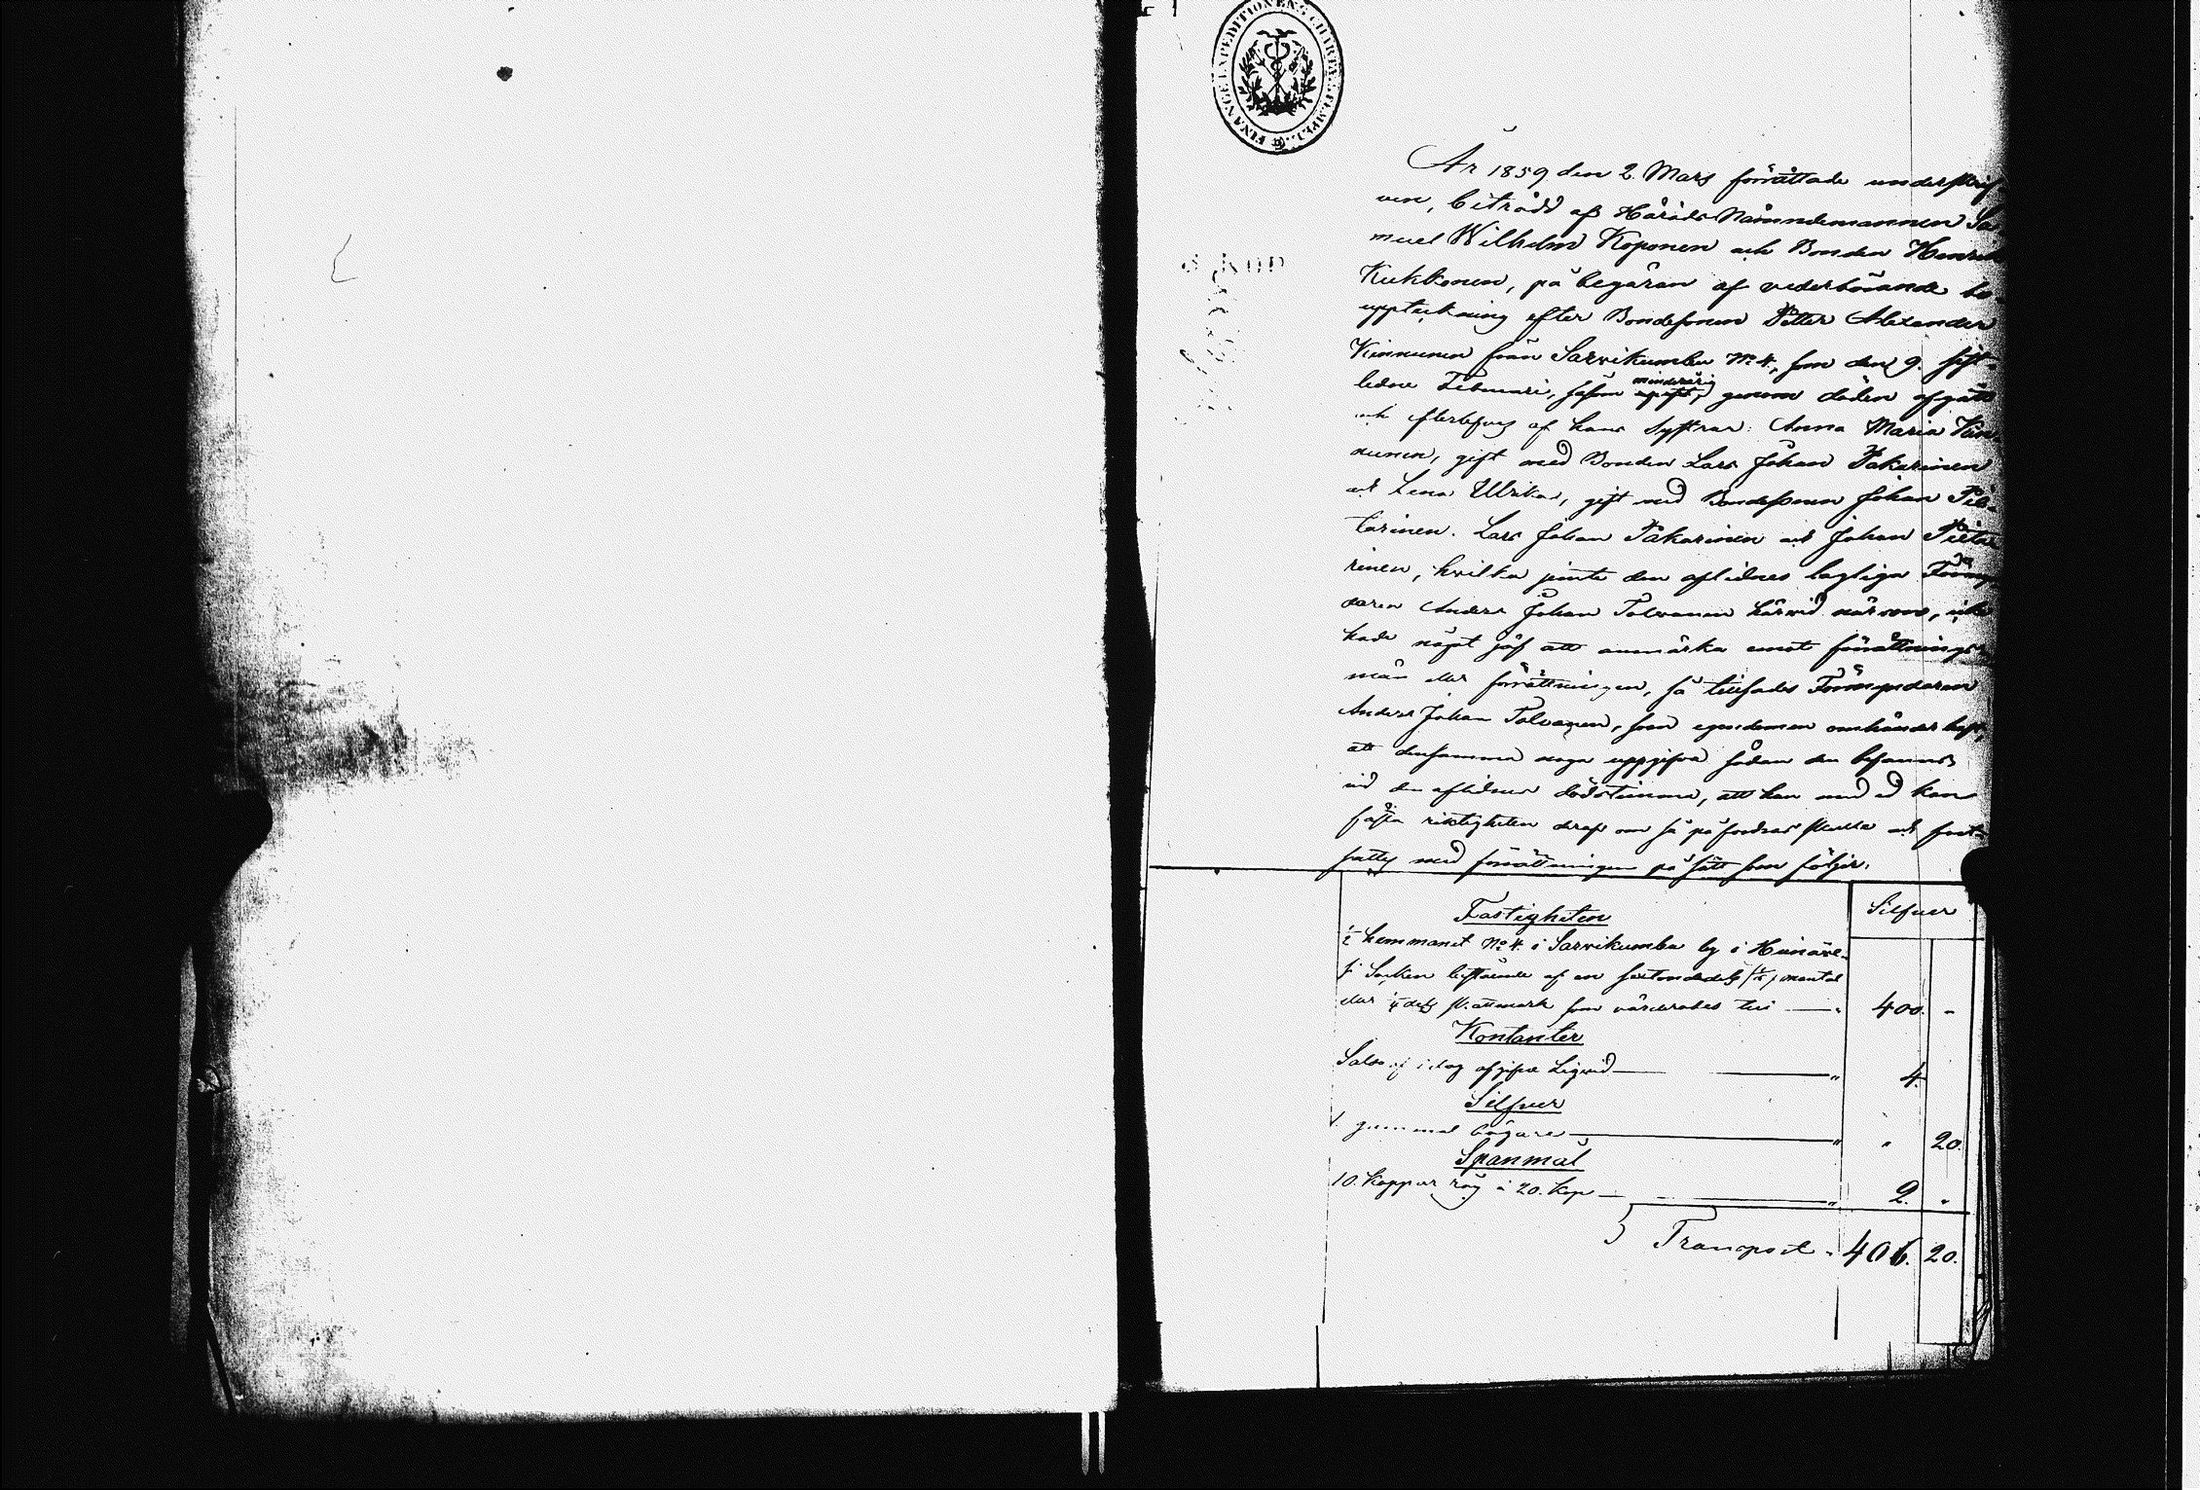 FINANCE EXPEDITIONENS CHARTÆ STEMPEL
År 1859 den 2. Mars förrättade underskrif-
ven, biträdd af Härads Nämndemannen Sa-
muel Wilhelm Koponen och Bonden Henrik
Kukkonen, på begäran af vederbörande bo-
uppteckning efter Bondesonen Petter Alexander
Kinnunen från Sarvikumbu No 4, som den 9. sist-
ledne Februari, såsom minderårig genom döden afgått
och efterlefvas af hans Systrar: Anna Maria Kin-
nunen, gift med Bonden Lars Johan Pakarinen
och Lena Ulrika, gift med Bondesonen Johan Pie-
tarinen. Lars Johan Pakarinen och Johan Pieta-
rinen, hvilka jemte den aflidnes lagliga Förmyn-
daren Anders Johan Tolvanen härvid närvoro, icke
hade något jäf att anmärka emot förrättnings-
män eller förrättningen, så tillsades Förmyndaren
Anders Johan Tolvanen, som egendomen omhänder haft,
att densamma noga uppgifva sådan den befanns
vid den aflidnes dödstimma, att han med ed kan
fästa riktigheten deraf om så påfordras skulle och fort-
sattes med förrättningen på sätt som följer.
Silfver
Fastigheten
1/2 hemmanet No 4 i Sarvikumbu by i
Socken bestående af en mantal
eller skattmark som värderades till 400. -
Kontanter
i dag afgifva Liqvid 4.
Silfver
1. gammal bägare " 20.
Spanmål
10. Kappar råg à 20. kop 2. "
Transport 406. 20.